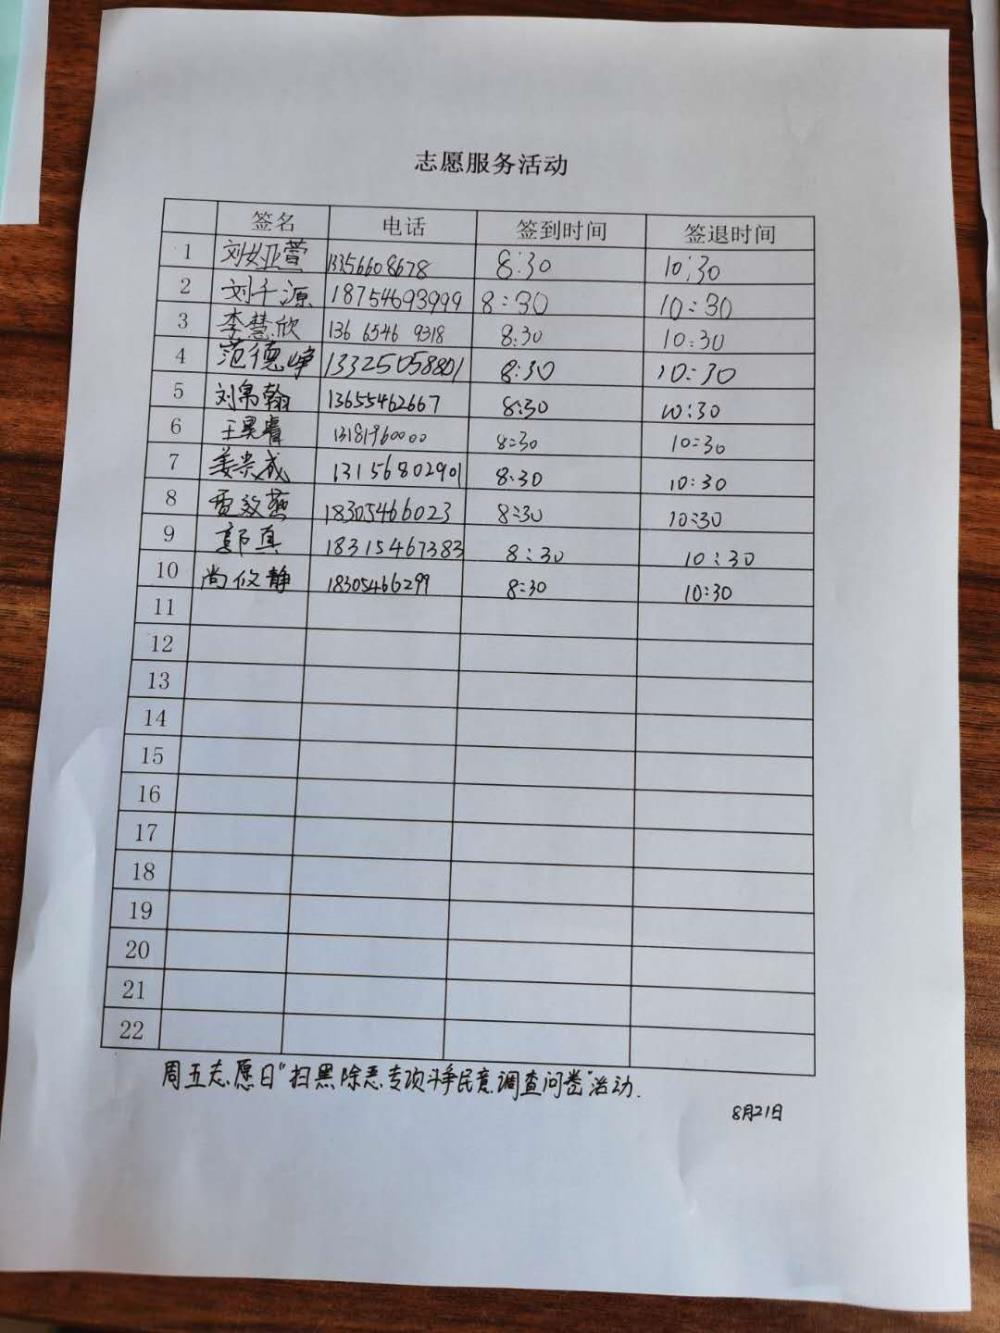 志愿服务活动
签名 电话 签到时间 签退时间
1 刘娅萱 13356608678 8:30 10:30
2 刘千源 18754693999 8:30 10:30
3 李慧欣 136 6546 9318 8:30 10:30
4 范德峥 13325058801 8:30 10:30
5 刘帛翰 13655462667 8:30 10:30
6 王昊睿 13181960000 8:30 10:30
7 姜崇威 13156802901 8:30 10:30
8 雷效燕 18305466023 8:30 10:30
9 郭真 18315467383 8:30 10:30
10 尚攸静 18305466299 8:30 10:30
11
12
13
14
15
16
17
18
19
20
21
22
周五志愿日"扫黑除恶专项斗争民意调查问卷"活动.
8月21日